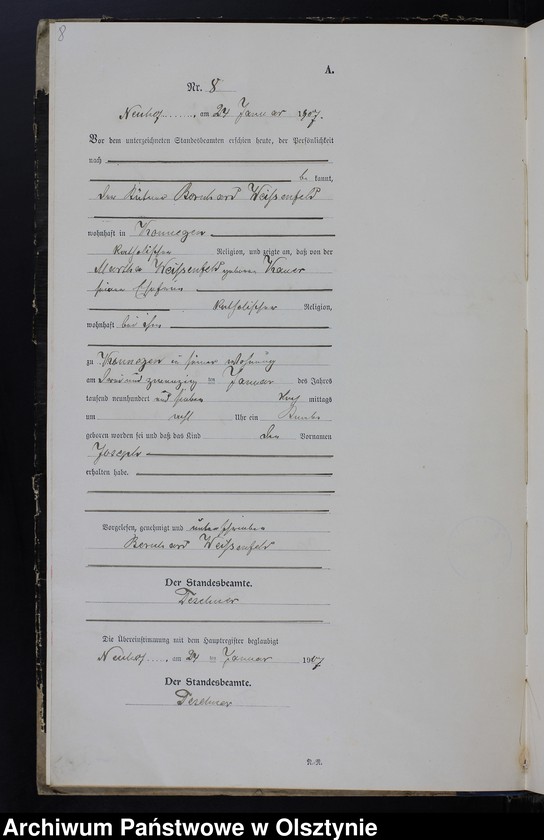 8
A.
Nr. 8
Neuhof, am 24 Januar 1907.
Vor dem unterzeichneten Standesbeamten erschien heute, der Persönlichkeit
nach
be kannt,
der Bernhard Weißenfeld
wohnhaft in Konnegen
katholischer Religion, und zeigte an, daß von der
Martha Weißenfeld geborene
seiner Ehefrau
katholischer Religion,
wohnhaft bei ihm
zu Konnegen in seiner Wohnung
am zwanzig ten Januar des Jahres
tausend neunhundert und sieben Nach mittags
um acht Uhr ein Knabe
geboren worden sei und daß das Kind den Vornamen
Joseph
erhalten habe.
Vorgelesen, genehmigt und unterschrieben
Bernhard Weißenfeld
Der Standesbeamte.
Teschner
Die Übereinstimmung mit dem Hauptregister beglaubigt
Neuhof, am 24 ten Januar 1907
Der Standesbeamte.
Teschner
R.-R.
Archiwum Państwowe w Olsztynie